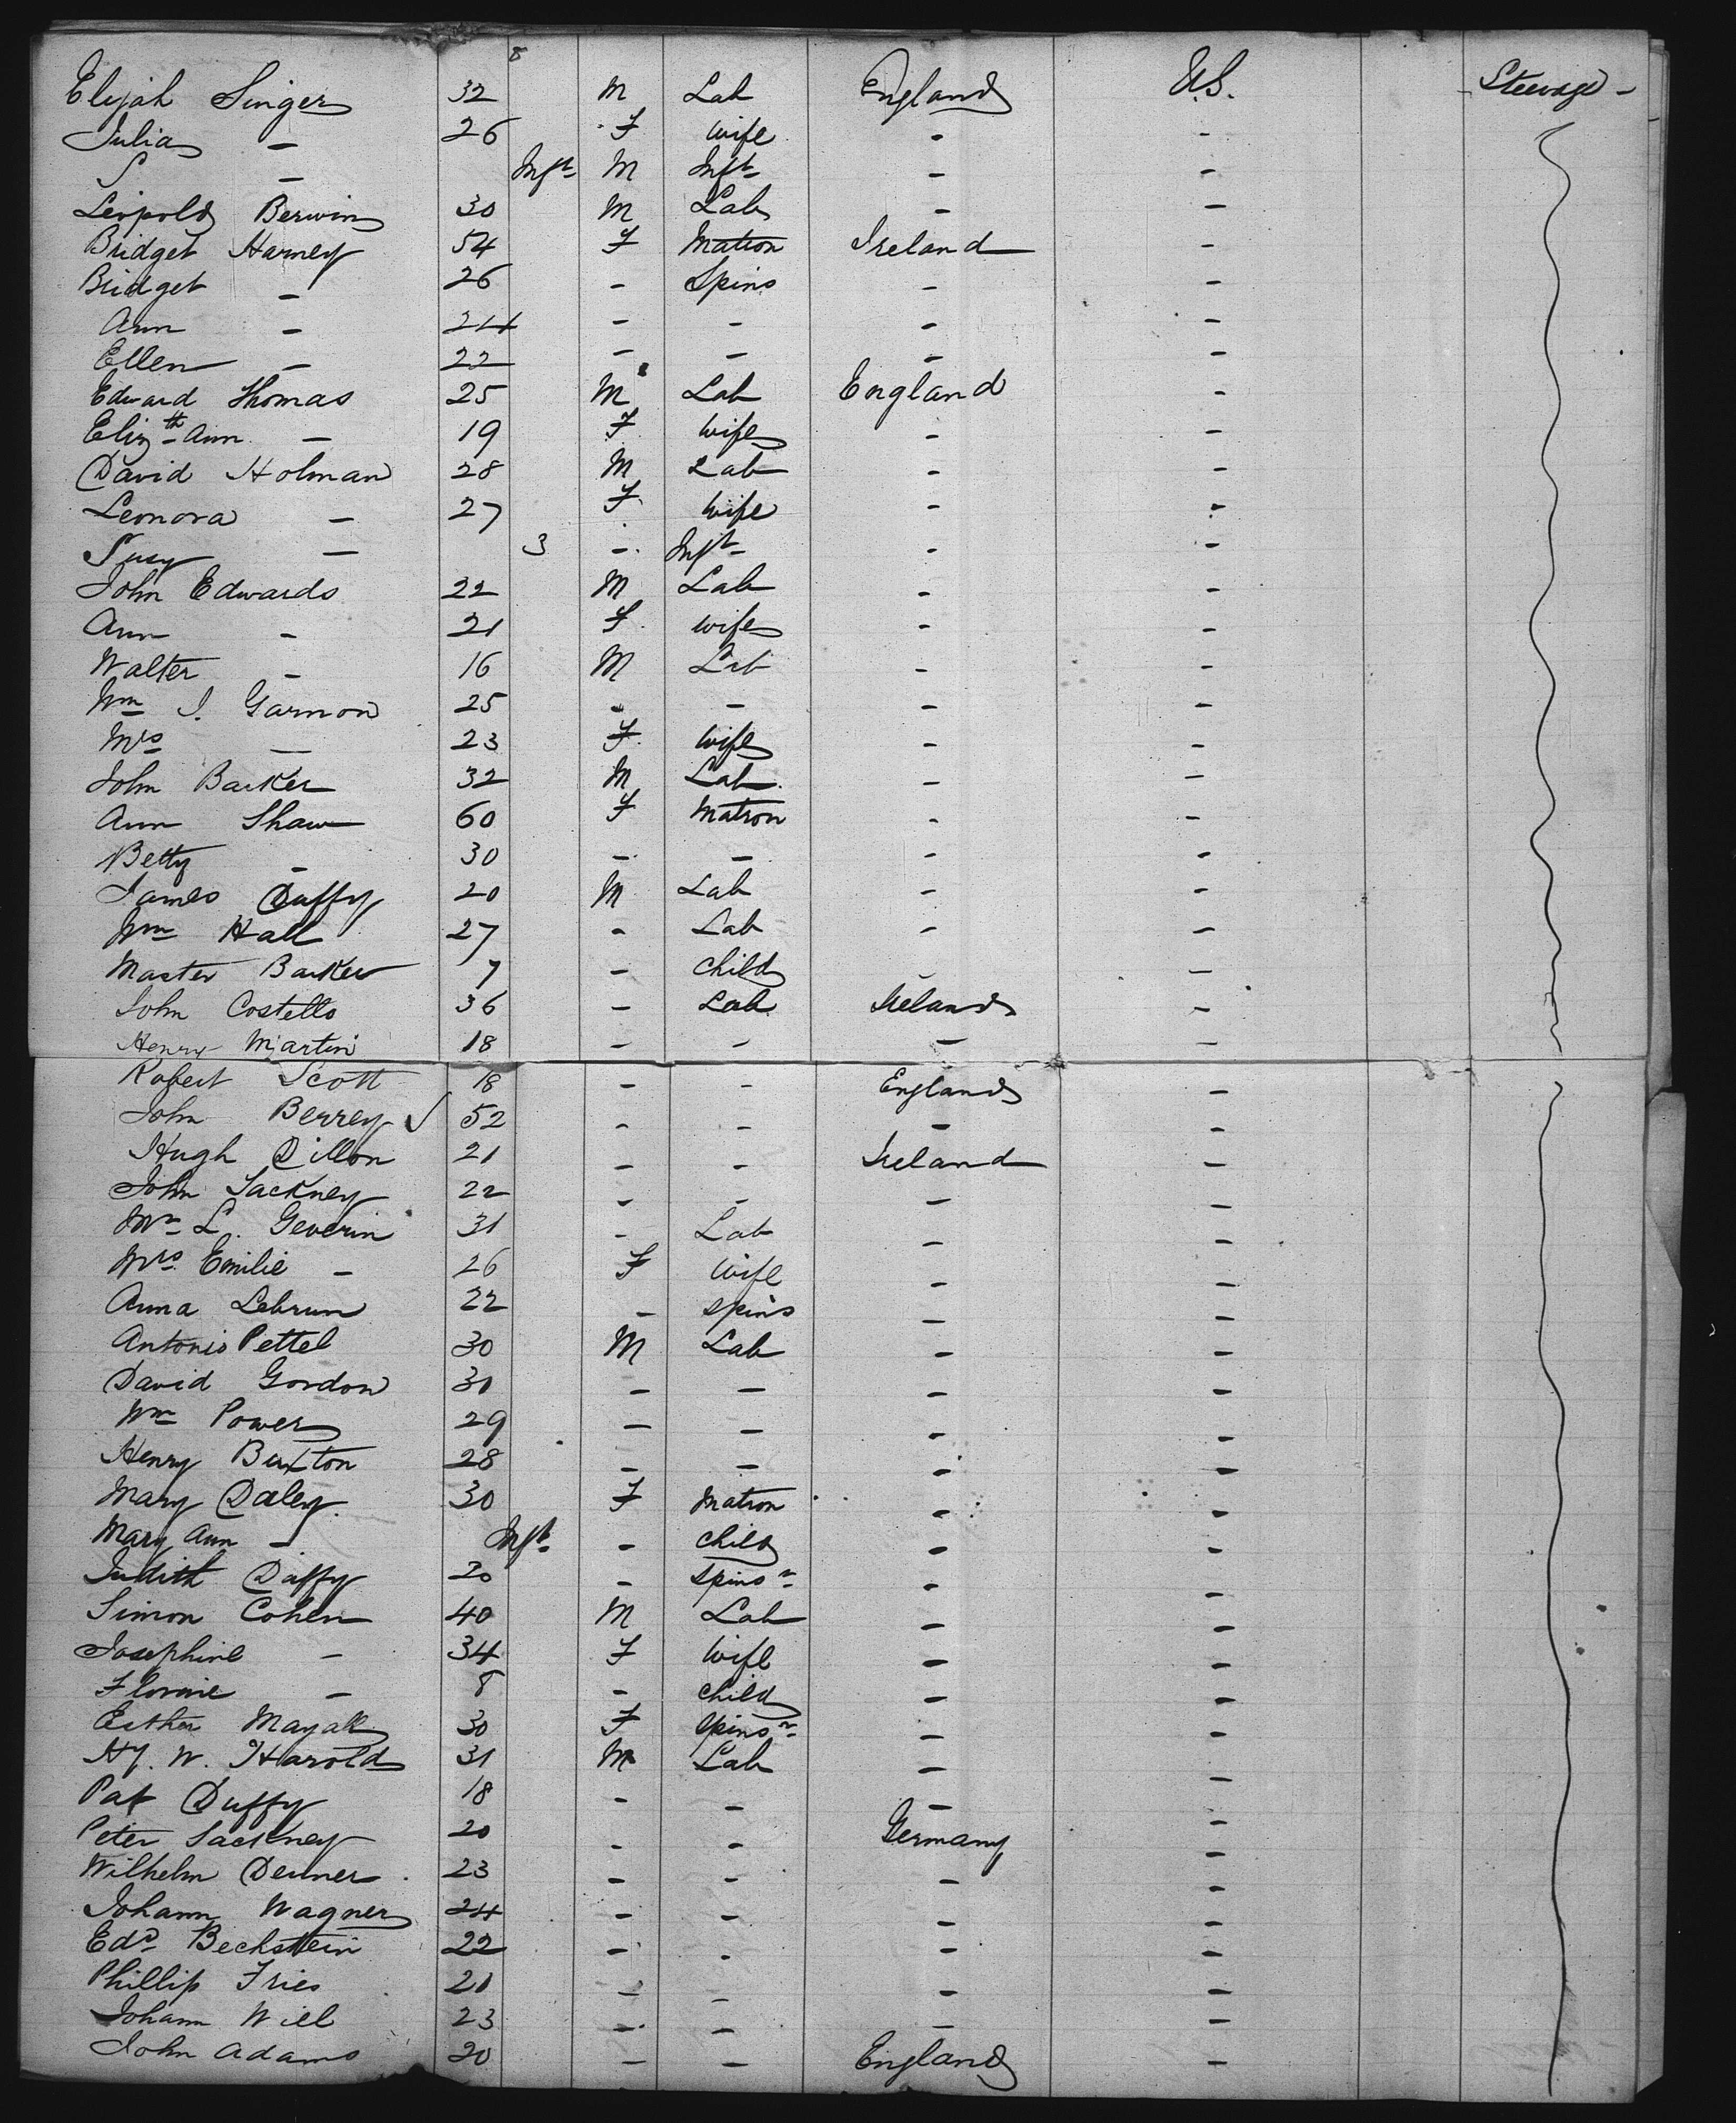 8
Elijah Singer 32 M Lab England U.S. - Steerage -
Julia - 26 F wife - -
S - Inft M Inft - -
Leopold Berwin 30 M Lab - -
Bridget Harney 54 F Matron Ireland -
Bridget - 26 - Spins - -
Ann - 24 - - - -
Ellen - 22 - - - -
Edward Thomas 25 M Lab England -
Elizth Ann - 19 F wife - -
David Holman 28 M Lab - -
Leonora - 27 F wife - -
Susy - 3 - Inft - -
John Edwards 22 M Lab - -
Ann - 21 F wife - -
Walter - 16 M Lab - -
Wm J. Garmon 25 - - - -
Mrs - 23 F wife - -
John Barker 32 M Lab - -
Ann Shaw 60 F Matron - -
Betty - 30 - - - -
James Duffy 20 M Lab - -
Wm Hall 27 - Lab - -
Master Barker 7 - child - -
John Costello 36 - Lab Ireland -
Henry Martin 18 - - - -
Robert Scott 18 - - England -
John Berrey √ 52 - - - -
Hugh Dillon 21 - - Ireland -
John Sackney 22 - - - -
Mr L. Geverin 31 - Lab - -
Mrs Emilie - 26 F wife - -
Anna Lebrun 22 - spins - -
Antonio Pettel 30 M Lab - -
David Gordon 31 - - - -
Wm Power 29 - - - -
Henry Buxton 28 - - - -
Mary Daley 30 F Matron - -
Mary Ann - Inft - child - -
Judith Duffy 20 - spinsr - -
Simon Cohen 40 M Lab - -
Josephine - 34 F wife - -
Florine - 8 - child - -
Esther Mayak 30 F spinsr - -
Hy. W. Harold 31 M Lab - -
Pat Duffy 18 - - - -
Peter Sackney 20 - - Germany -
Wilhelm Denner 23 - - - -
Johann Wagner 24 - - - -
Edd Bechstein 22 - - - -
Phillip Fries 21 - - - -
Johann Will 23 - - - -
John Adams 20 - - England -